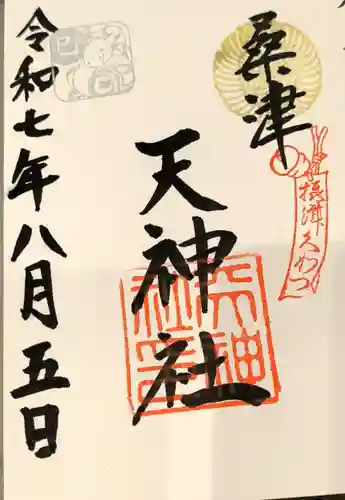 桑津
天神社
令和七年八月五日
摂津
くわつ
天神社